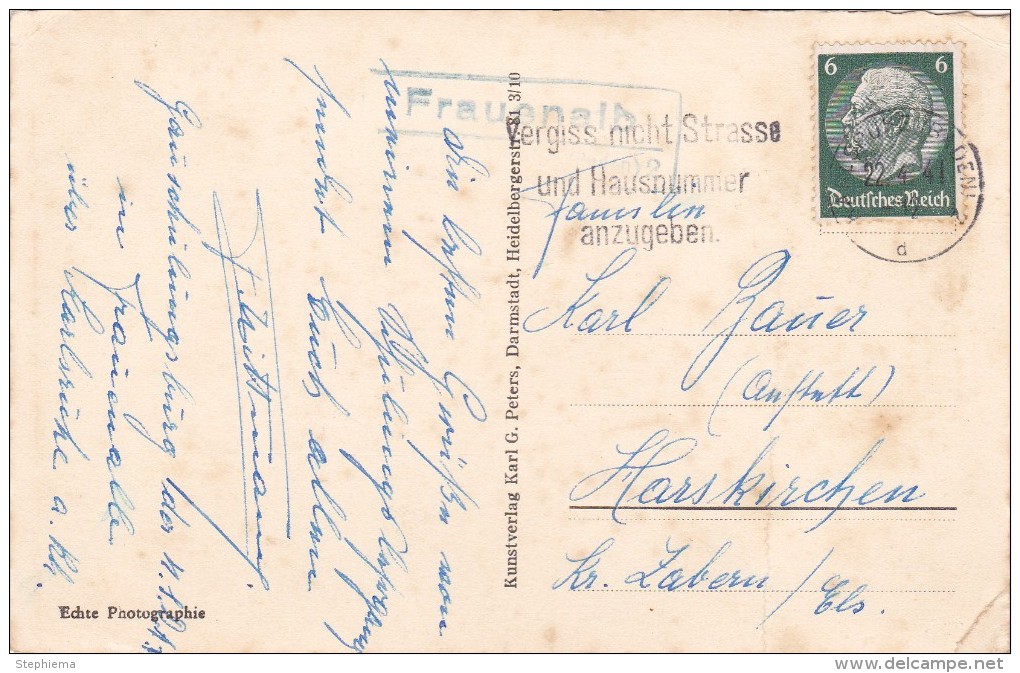 Die besten Grüße von
meinem Schulungslehrgang
sendet Euch allen
F. Wittmann
Gauschulungsburg der N.S.D.A.P.
in Frauenalb
über Karlsruhe a. Rh.
Echte Photographie
Kunstverlag Karl G. Peters, Darmstadt, Heidelbergerstr. 81 3/10
Frauenalb
Vergiss nicht Strasse
und Hausnummer
anzugeben.
6 6
Deutsches Reich
22.4.41
d
Familien
Karl Bauer
Harskirchen
Kr. Zabern / Els.
Stephiema
delcampe.net